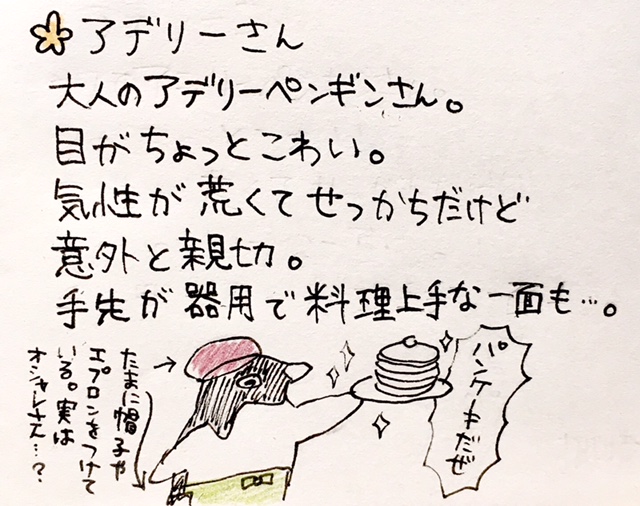 アデリーさん
大人のアデリーペンギンさん。
目がちょっとこわい。
気性が荒くてせっかちだけど
意外と親切。
手先が器用で料理上手な一面も…。
たまに帽子や
エプロンをつけて
いる。実は
オシャレさん…?
パンケーキだぜ